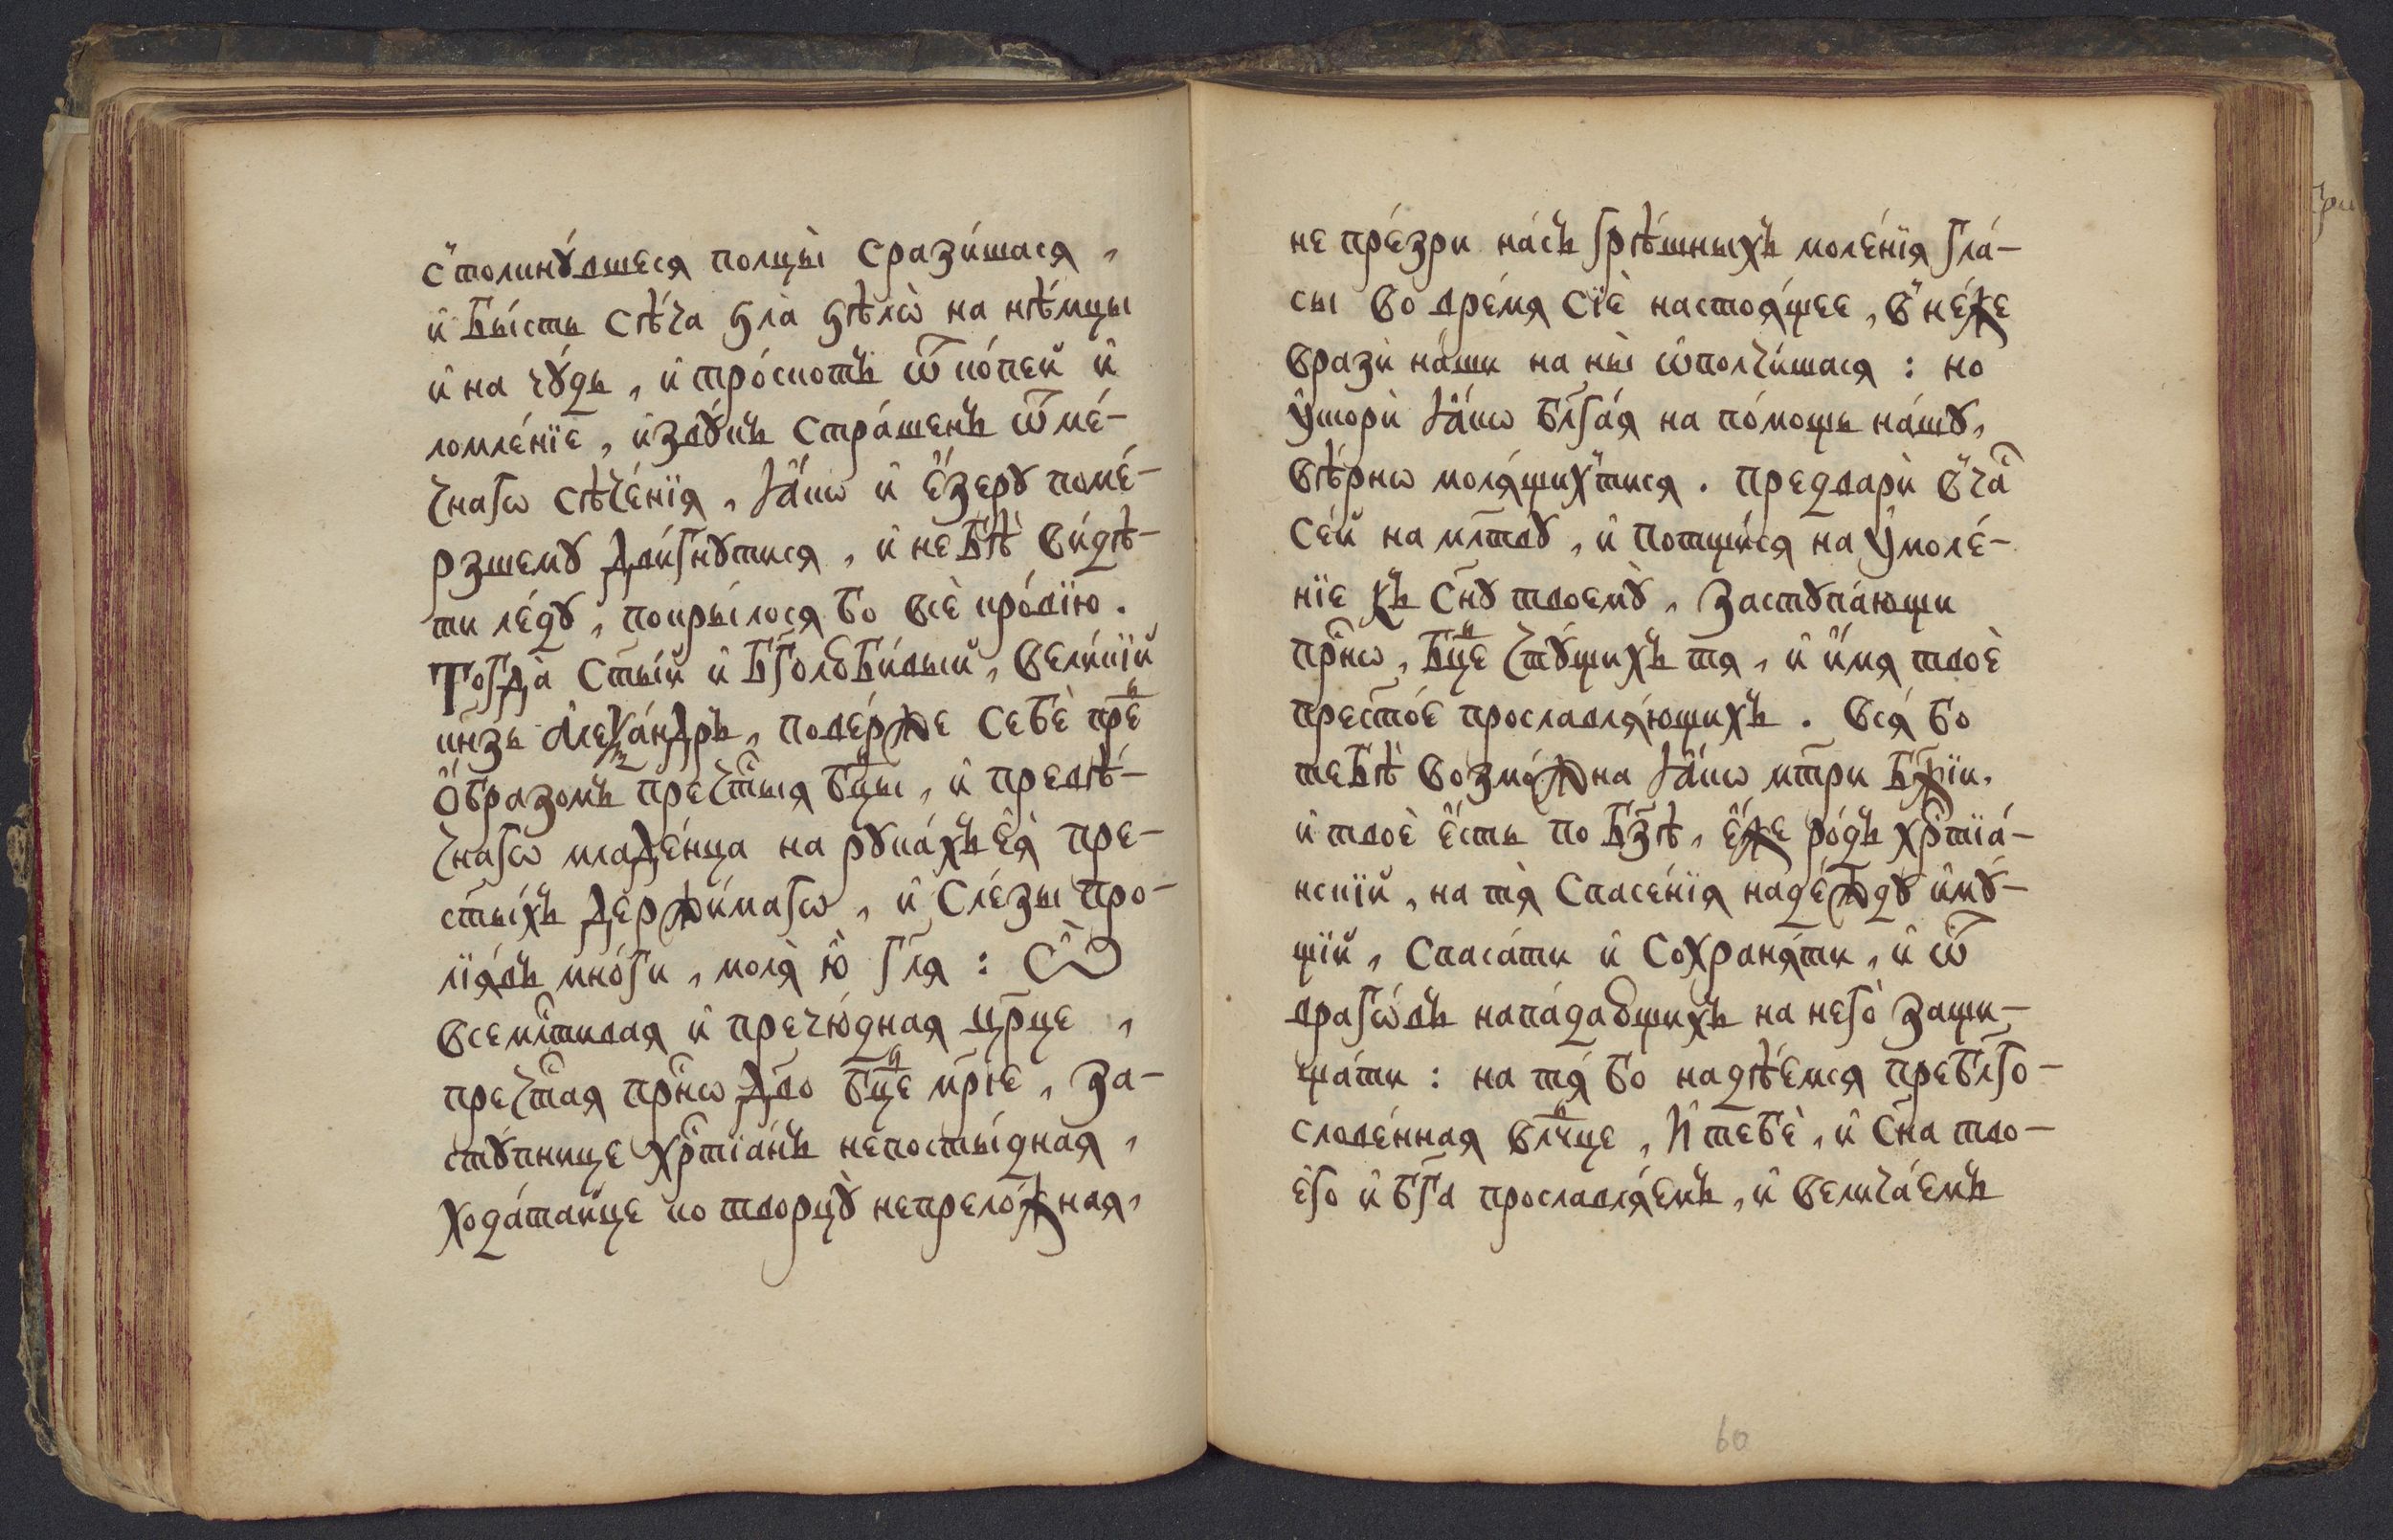 с̾толкнꙋ́вшеся полцы̀ сразишася,
и҆ бы́сть сѣ́ча ѕла̀ ѕѣлѡ̀ на нѣ́мцы
и҆ на чю́дь, и҆ тро́скотъ ѿ ко́пей и҆
ломле́нїе, и҆ звꙋ́къ стра́шенъ ѿ ме́-
чнагѡ сѣче́нїя, ꙗ҆́кѡ и҆ е҆́зерꙋ поме́-
рзшемꙋ дви́гнꙋтися, и҆ не бѣ̀ ви́дѣ-
ти ле́дꙋ, покры́лося бо всѐ кро́вїю.
Тогда̀ ст҃ы́й и҆ бг҃олюби́выи, вели́кїй
кн҃зь а҆леѯа́ндръ, пове́рже себѐ пре
ѻ҆́бразомъ пречⷭ҇тыя бцⷣы, и҆ превѣ́-
чнагѡ младе́нца на рꙋка́хъ е҆я̀ пре-
ст҃ы́хъ держи́магѡ, и҆ сле́зы про-
лїя́въ мно́ги, моля̀ ю҆̀ гл҃я: Ѽ
всемлⷭ҇тивая и҆ пречю́дная цр҃це,
пречⷭ҇тая прⷭ҇нѡ дв҃о бцⷣе мр҃іе, за-
стꙋ́пнице хрⷭ҇тїа́нъ непосты́дная,
хода́таице ко творцꙋ̀ непрело́жная,
не пре́зри на́съ грѣ́шныхъ моле́нїя гла́-
сы во вре́мя сїѐ настоя́щее, в̾ не́же
врази̂ на́ши на ны̀ ѡ҆полчи́шася: но
ᲂу҆скорѝ ꙗ҆́кѡ бл҃га́я на по́мощь на́шꙋ,
вѣ́рнѡ моля́щих̾тися. предварѝ в̾ ча
се́й на мл҃твꙋ, и҆ потщи́ся на ᲂу҆моле́-
нїе къ сн҃ꙋ твоемꙋ̀, застꙋпа́ющи
прⷭ҇нѡ, бцⷣе чтꙋ́щихъ тя, и҆ и҆́мя твоѐ
прест҃о́е прославля́ющихъ. вся́ бо
тебѣ̀ возмо́жна ꙗ҆́кѡ мт҃ри бж҃їи.
и҆ твоѐ е҆́сть по бз҃ѣ, е҆́же ро́дъ хрⷭ҇тїа́-
нскїй, на тя̀ спасе́нїя наде́ждꙋ и҆мꙋ́-
щїй, спаса́ти и҆ сохраня́ти, и҆ ѿ
врагѡ́въ напа́дающихъ на него̀ защи-
ща́ти: на тя́ бо надѣ́емся пребл҃го-
слове́нная влⷣчце, И҆ тебѐ, и҆ сн҃а тво-
его̀ и҆ бг҃а прославля́емъ, и҆ велича́емъ
60